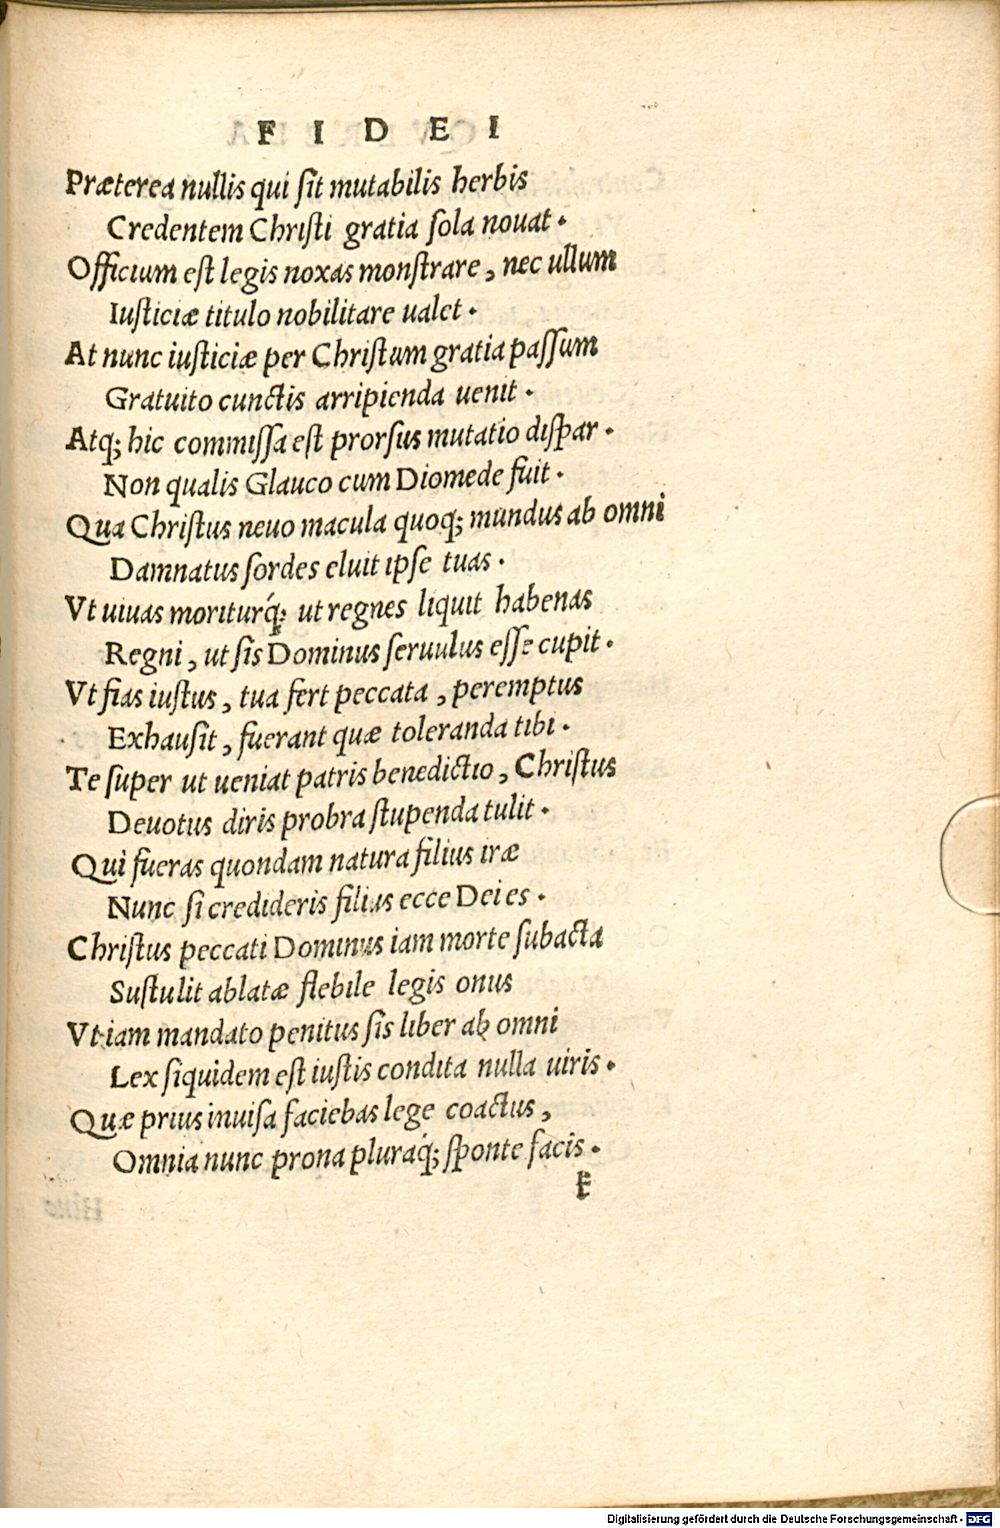 F I D E I
Præterea nullis qui sit mutabilis herbis
Credentem Christi gratia sola nouat.
Officium est legis noxas monstrare, nec ullum
Iusticiæ titulo nobilitare ualet.
At nunc iusticiæ per Christum gratia passum
Gratuito cunctis arripienda uenit.
Atq; hic commissa est prorsus mutatio dispar.
Non qualis Glauco cum Diomede fuit.
Qua Christus neuo macula quoq; mundus ab omni
Damnatus sordes eluit ipse tuas.
Vt uiuas moriturq́; ut regnes liquit habenas
Regni, ut sis Dominus seruulus esse cupit.
Vt fias iustus, tua fert peccata, peremptus
Exhausit, fuerant quæ toleranda tibi.
Te super ut ueniat patris benedictio, Christus
Deuotus diris probra stupenda tulit.
Qui fueras quondam natura filius iræ
Nunc si credideris filius ecce Dei es.
Christus peccati Dominus iam morte subacta
Sustulit ablatæ flebile legis onus
Vt iam mandato penitus sis liber ab omni
Lex siquidem est iustis condita nulla uiris.
Quæ prius inuisa faciebas lege coactus,
Omnia nunc prona pluraq́; sponte facis.
E
Digitalisierung gefördert durch die Deutsche Forschungsgemeinschaft - DFG